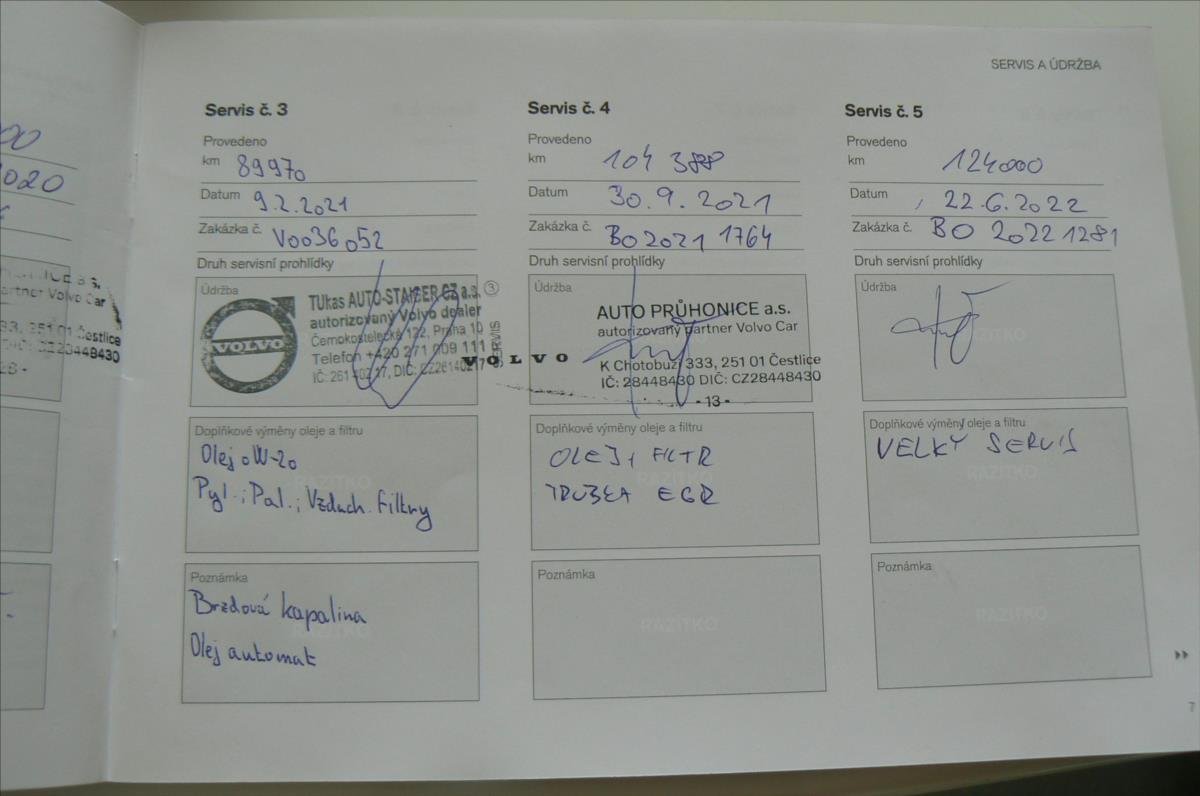 SERVIS A ÚDRŽBA
00
2020
partner Volvo Car
333, 251 01 Čestlice
DIČ: CZ28448430
28 -
Servis č. 3
Provedeno
km 89970
Datum 9.2.2021
Zakázka č. V0036052
Druh servisní prohlídky
Údržba
VOLVO
TUkas AUTO-STAIGER CZ a.s. ③
autorizovaný Volvo dealer
Černokostelecká 122, Praha 10
Telefon +420 271 009 111
IČ: 26140217, DIČ: CZ26140217
SERVIS
Doplňkové výměny oleje a filtru
Olej 0W-20
Pyl.; Pal.; Vzduch. Filtry
RAZÍTKO
Poznámka
Brzdová kapalina
Olej automat
RAZÍTKO
Servis č. 4
Provedeno
km 104 388
Datum 30.9.2021
Zakázka č. BO2021 1764
Druh servisní prohlídky
Údržba
AUTO PRŮHONICE a.s.
autorizovaný partner Volvo Car
VOLVO
K Chotobuzi 333, 251 01 Čestlice
IČ: 28448430 DIČ: CZ28448430
- 13 -
Doplňkové výměny oleje a filtru
OLEJ, FILTR
TRUBKA EGR
Poznámka
RAZÍTKO
Servis č. 5
Provedeno
km 124000
Datum 22.6.2022
Zakázka č. BO 2022 1281
Druh servisní prohlídky
Údržba
RAZÍTKO
Doplňkové výměny oleje a filtru
VELKÝ SERVIS
RAZÍTKO
Poznámka
RAZÍTKO
7